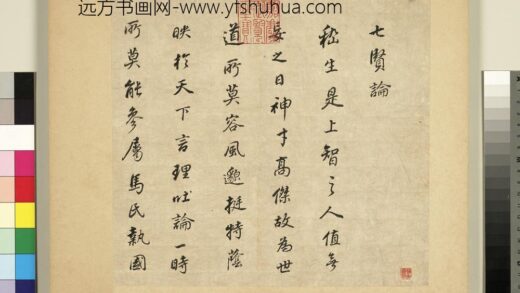 远方书画网-www.yfshuhua.com
七賢論
嵇生是上智之人值無
妄之日神才高傑故為世
道所莫容風邈挺特蔭
映於天下言理吐論一時
所莫能參屬馬氏執國